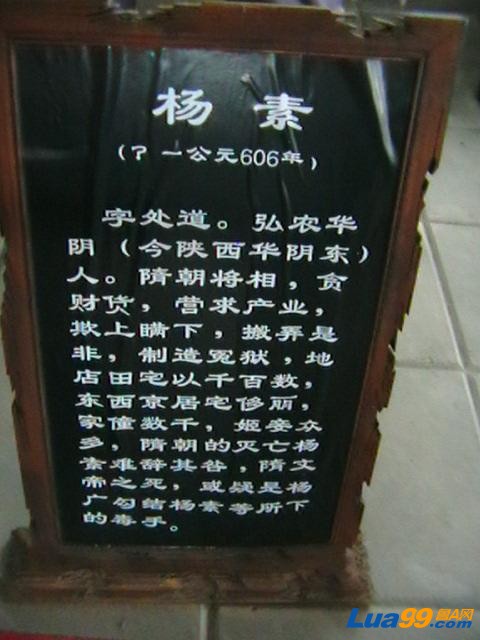 杨素
(? 一公元606年)
字处道。弘农华
阴(今陕西华阴东)
人。隋朝将相,贪
财货,营求产业,
欺上瞒下,搬弄是
非,制造冤狱,地
店田宅以千百数,
东西京居宅侈丽,
家僮数千,姬妾众
多,隋朝的灭亡杨
素难辞其咎,隋文
帝之死,或疑是杨
广勾结杨素等所下
的毒手。
Lua99.com